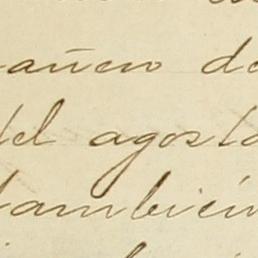 añero de
del agosta
también